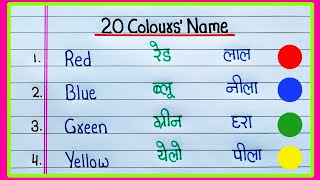 20 Colours' Name
1. Red रेड लाल
2. Blue ब्लू नीला
3. Green ग्रीन हरा
4. Yellow येलो पीला